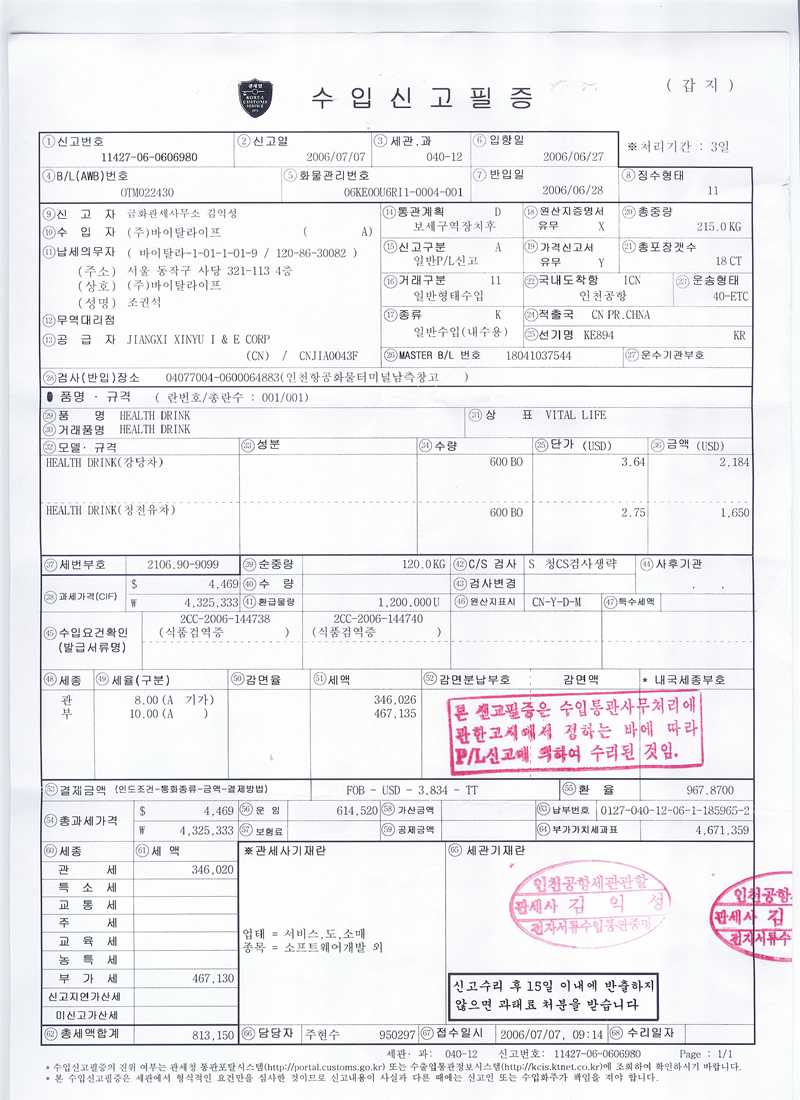 ( 갑 지 )
관세청
KOREA
CUSTOMS
SERVICE
수 입 신 고 필 증
①신고번호 ②신고일 ③세관.과 ⑥입항일 ※처리기간 : 3일
11427-06-0606980 2006/07/07 040-12 2006/06/27
④B/L(AWB)번호 ⑤화물관리번호 ⑦반입일 ⑧징수형태
OTM022430 06KE0OU6RI1-0004-001 2006/06/28 11
⑨신 고 자 금화관세사무소 김익성 ⑭통관계획 D ⑱원산지증명서 ⑳총중량
⑩수 입 자 (주)바이탈라이프 ( A) 보세구역장치후 유무 X 215.0KG
⑪납세의무자 ( 바이탈라-1-01-1-01-9 / 120-86-30082 ) ⑮신고구분 A ⑲가격신고서 ㉑총포장갯수
(주소) 서울 동작구 사당 321-113 4층 일반P/L신고 유무 Y 18 CT
(상호) (주)바이탈라이프 ⑯거래구분 11 ㉒국내도착항 ICN ㉓운송형태
(성명) 조권석 일반형태수입 인천공항 40-ETC
⑫무역대리점 ⑰종류 K ㉔적출국 CN PR.CHNA
⑬공 급 자 JIANGXI XINYU I & E CORP 일반수입(내수용) ㉕선기명 KE894 KR
(CN) / CNJIA0043F ㉖MASTER B/L 번호 18041037544 ㉗운수기관부호
㉘검사(반입)장소 04077004-0600064883(인천항공화물터미널남측창고 )
품명 · 규격 ( 란번호/총란수 : 001/001)
㉙품 명 HEALTH DRINK ㉛상 표 VITAL LIFE
㉚거래품명 HEALTH DRINK
㉜모델· 규격 ㉝성분 ㉞수량 ㉟단가 (USD) ㊱금액 (USD)
HEALTH DRINK(강당차) 600 BO 3.64 2,184
HEALTH DRINK(청전유차) 600 BO 2.75 1,650
㊲세번부호 2106.90-9099 ㊴순중량 120.0KG ㊷C/S 검사 S 청CS검사생략 ㊹사후기관
㊳과세가격(CIF) $ 4,469 ㊵수 량 ㊸검사변경 . .
₩ 4,325,333 ㊶환급물량 1,200.000U ㊻원산지표시 CN-Y-D-M ㊼특수세액
㊺수입요건확인 2CC-2006-144738 2CC-2006-144740
(발급서류명) (식품검역증 ) (식품검역증 )
㊽세종 ㊾세율(구분) ㊿감면율 세액 감면분납부호 감면액 * 내국세종부호
관 8.00(A 기가) 346,026
부 10.00(A ) 467,135
본 신고필증은 수입통관사무처리에
관한고시에서 정하는 바에 따라
P/L신고에 의하여 수리된 것임.
결제금액 (인도조건-통화종류-금액-결제방법) FOB - USD - 3,834 - TT 환 율 967.8700
총과세가격 $ 4,469 운 임 614,520 가산금액 납부번호 0127-040-12-06-1-185965-2
₩ 4,325,333 보험료 공제금액 부가가치세과표 4,671,359
세종 세 액 ※관세사기재란 세관기재란
관 세 346,020
특 소 세
교 통 세
주 세
교 육 세
농 특 세
부 가 세 467,130
신고지연가산세
미신고가산세
업태 = 서비스,도,소매
종목 = 소프트웨어개발 외
인천공항세관관할
관세사 김 익 성
전자서류수입통관증명
인천공항
관세사 김
전자서류수
신고수리 후 15일 이내에 반출하지
않으면 과태료 처분을 받습니다
총세액합계 813,150 담당자 주현수 950297 접수일시 2006/07/07, 09:14 수리일자
세관· 과: 040-12 신고번호: 11427-06-0606980 Page : 1/1
* 수입신고필증의 진위 여부는 관세청 통관포탈시스템(http://portal.customs.go.kr) 또는 수출입통관정보시스템(http://kcis.ktnet.co.kr)에 조회하여 확인하시기 바랍니다.
* 본 수입신고필증은 세관에서 형식적인 요건만을 심사한 것이므로 신고내용이 사실과 다른 때에는 신고인 또는 수입화주가 책임을 져야 합니다.